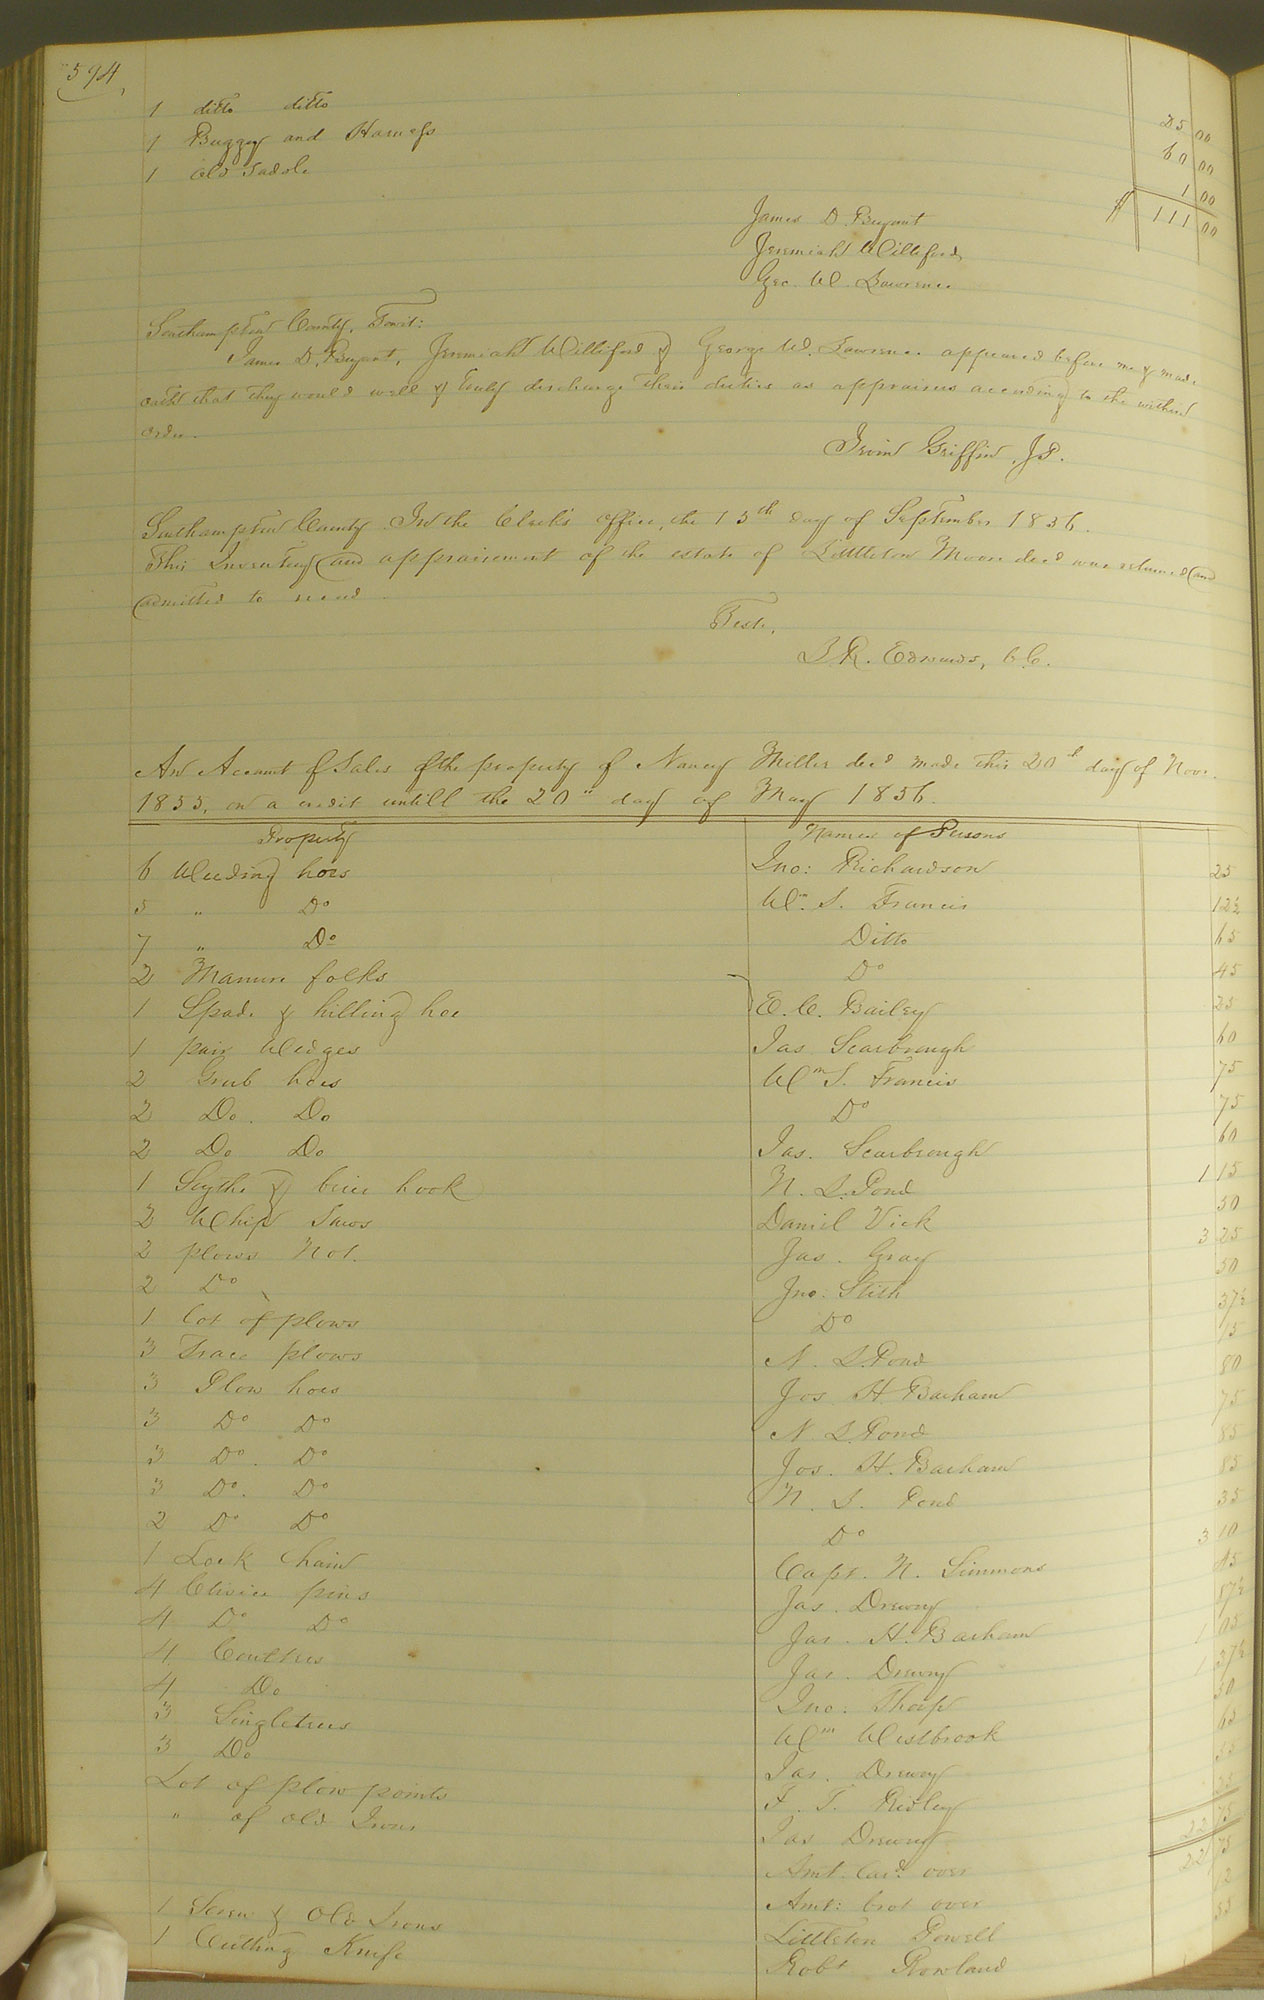 594
1 ditto ditto 25 00
1 Buggy and Harness 60 00
1 old Saddle 1 00
$ 111 00
James D. Bryant
Jeremiah Williford
Geo. W. Lawrence
Southampton County, Towit:
James D. Bryant, Jeremiah Williford & George W. Lawrence appeared before me & made
oath that they would well & truly discharge their duties as appraisers according to the within
order.
Irvin Griffin, J.P.
Southampton County In the Clerk's office, the 15th day of September 1856.
This Inventory and appraisement of the estate of Littleton Moore decd was returned and
admitted to record.
Teste,
L.R. Edwards, C.C.
An Account of Sales of the property of Nancy Miller decd made this 20th day of Novr.
1855, on a credit untill the 20" day of May 1856.
Property Names of Persons
6 Weeding hoes Jno: Richardson 25
5 " Do Wm. S. Francis 12½
7 " Do Ditto 65
2 Manure folks Do 45
1 Spade & hilling hoe E. C. Bailey 25
1 pair Wedges Jas Scarbrough 60
2 Grub hoes Wm S. Francis 75
2 Do. Do Do 75
2 Do Do Jas. Scarbrough 60
1 Scythe & brier hook N. S. Pond 1 15
2 Whip Saws Daniel Vick 50
2 plows No 1. Jas. Gray 3 25
2 Do Jno: Stith 50
1 Lot of plows Do 37½
3 Trace plows N. S. Pond 15
3 Plow hoes Jos H. Barham 80
3 Do Do N. S. Pond 75
3 Do. Do Jos. H. Barham 85
3 Do. Do N. S. Pond 85
2 Do Do Do 35
1 Lock Chain Capt. N. Simmons 3 10
4 Clivice pins Jas. Drewry 45
4 Do Do Jas. H. Barham 87½
4 Coulters Jas. Drewry 1 05
4 Do Jno: Thorp 1 37½
3 Singletrees Wm Westbrook 50
3 Do Jas. Drewry 65
Lot of plow points F. T. Ridley
" of old Irons Jas Drewry 25
Amt. Card. over 22 75
Amt: brot over 22 75
1 Screw & Old Irons Littleton Powell 12
1 Cutting Knife Robt Rowland 55